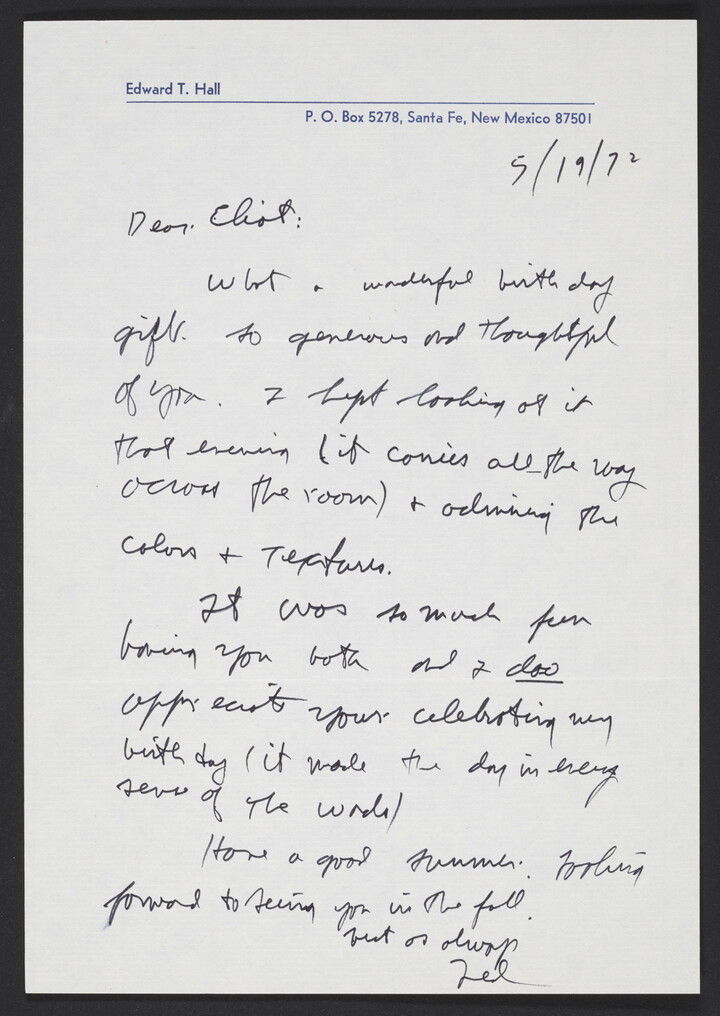 Edward T. Hall
P. O. Box 5278, Santa Fe, New Mexico 87501
5/19/72
Dear Eliot:
What a wonderful birthday
gift. So generous and thoughtful
of you. I kept looking at it
that evening (it carries all the way
across the room) + admiring the
colors + textures.
It was so much fun
having you both and I do
appreciate your celebrating my
birthday (it made the day in every
sense of the word)
Have a good summer. Looking
forward to seeing you in the fall.
best as always
Ted